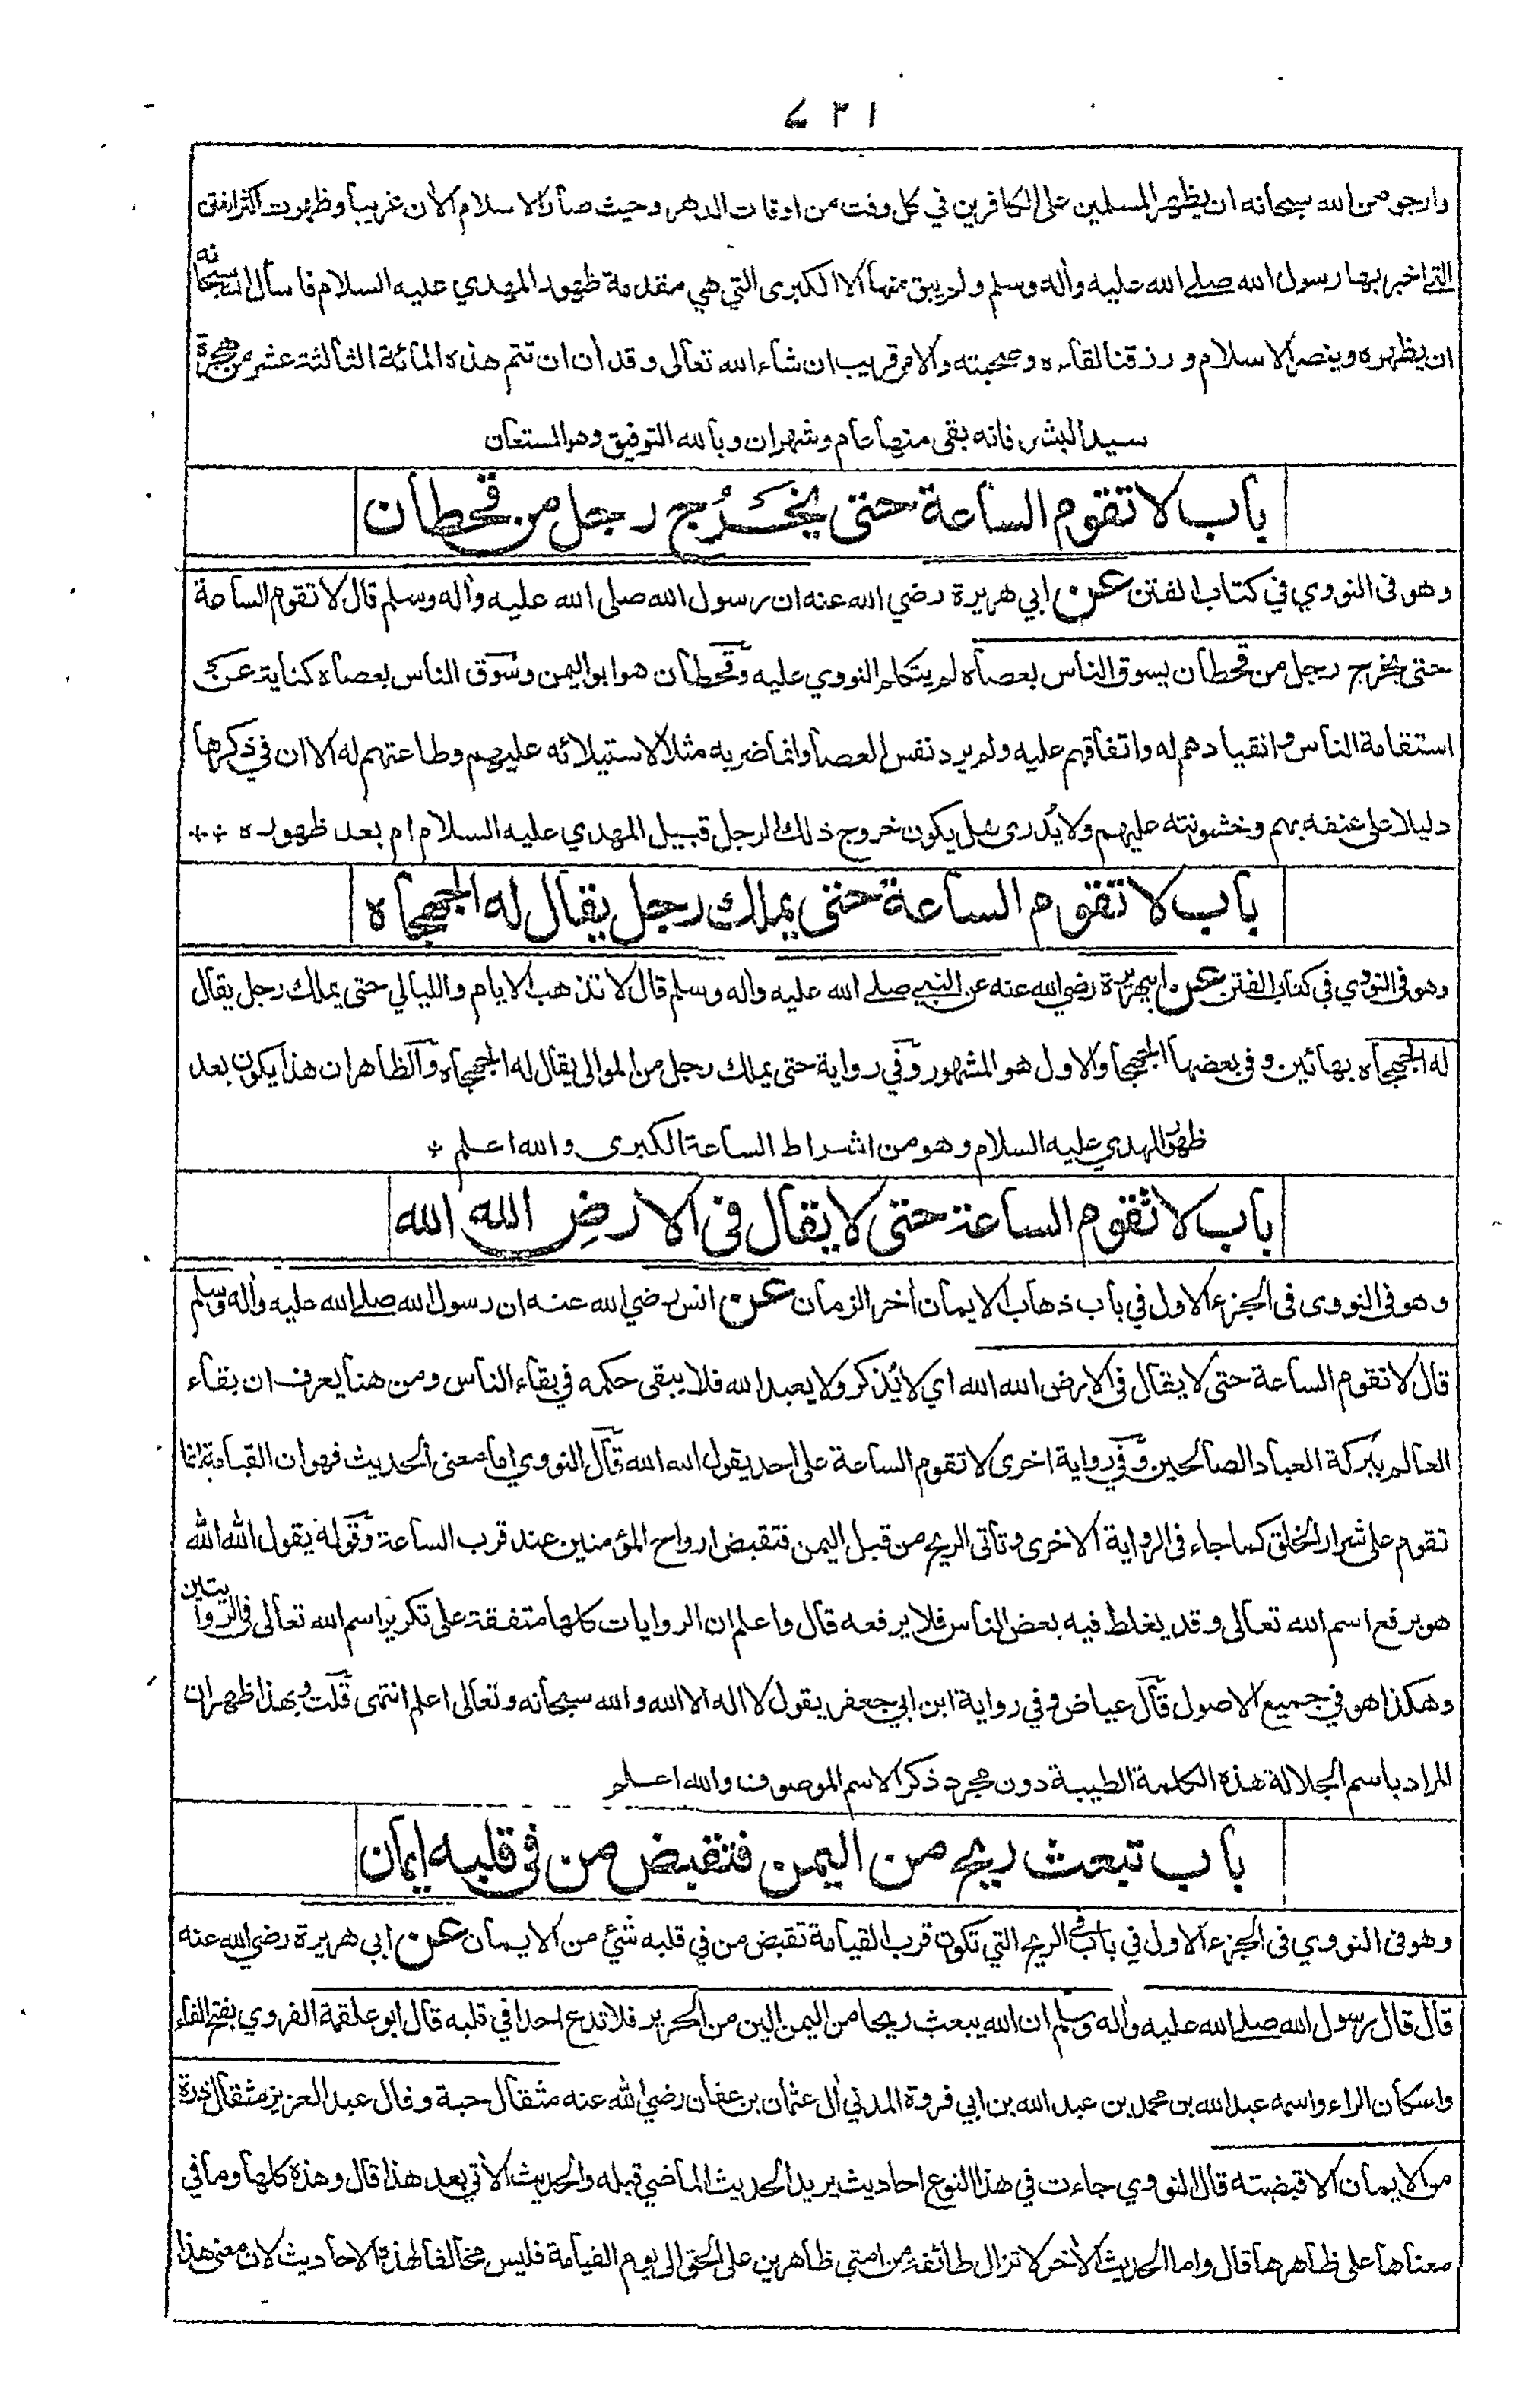 ٧٣١
وارجو من الله سبحانه ان يظهر المسلمين على الكافرين في كل وقت من اوقات الدهر وحيث صار الاسلام الأن غريبا وظهرت اكثر الفتن
التي اخبر بها رسول الله صلى الله عليه وأله وسلم ولم يبق منها الا الكبرى التي هي مقدمة ظهور المهدي عليه السلام فاسأل الله سبحانه
ان يظهره وينصر الاسلام ورزقنا لقاءه وصحبته والامر قريب ان شاء الله تعالى وقد أن ان تتم هذه المائة الثالثة عشر من هجرة
سيد البشر فانه بقى منها عام وشهران وبالله التوفيق وهو المستعان
باب لا تقوم الساعة حتى يخرُج رجل من قحطان
وهو فى النووي في كتاب الفتن عن ابي هريرة رضي الله عنه ان رسول الله صلى الله عليه وأله وسلم قال لا تقوم الساعة
حتى يخرج رجل من قحطان يسوق الناس بعصاه لم يتكلم النووي عليه وقحطان هو ابو اليمن وسوق الناس بعصاه كناية عن
استقامة الناس وانقيادهم له واتفاقهم عليه ولم يرد نفس العصا وانما ضربه مثلا لاستيلائه عليهم وطاعتهم له الا ان في ذكرها
دليلا على عنفه بهم وخشونته عليهم ولا يُدرى هل يكون خروج ذلك الرجل قبيل المهدي عليه السلام ام بعد ظهوره **
باب لا تقوم الساعة حتى يملك رجل يقال له الجهجاه
وهو فى النووي في كتاب الفتن عن ابي هريرة رضي الله عنه عن النبي صلى الله عليه وأله وسلم قال لا تذهب الايام والليالي حتى يملك رجل يقال
له الجهجاه بهائين وفى بعضها الجهجا والاول هو المشهور وفي رواية حتى يملك رجل من الموالى يقال له الجهجاه والظاهر ان هذا يكون بعد
ظهور المهدي عليه السلام وهو من اشراط الساعة الكبرى والله اعلم *
باب لا تقوم الساعة حتى لا يقال فى الارضِ الله الله
وهو فى النووى فى الجزء الاول في باب ذهاب الايمان أخر الزمان عن انس رضي الله عنه ان رسول الله صلى الله عليه وأله وسلم
قال لا تقوم الساعة حتى لا يقال فى الارض الله الله اي لا يُذكر ولا يعبد الله فلا يبقى حكمه في بقاء الناس ومن هنا يعرف ان بقاء
العالم ببركة العباد الصالحين وفي رواية اخرى لا تقوم الساعة على احد يقول الله الله قال النووي اما معنى الحديث فهو ان القيامة انما
تقوم على شرار الخلق كما جاء فى الرواية الاخرى وتأتى الريح من قبل اليمن فتقبض ارواح المؤمنين عند قرب الساعة وقوله يقول الله الله
هو برفع اسم الله تعالى وقد يغلط فيه بعض الناس فلا يرفعه قال واعلم ان الروايات كلها متفقة على تكرير اسم الله تعالى فى الروايتين
وهكذا هو في جميع الاصول قال عياض وفي رواية ابن ابي جعفر يقول لا اله الا الله والله سبحانه وتعالى اعلم انتهى قلت وبهذا ظهر ان
المراد باسم الجلالة هذه الكلمة الطيبة دون مجرد ذكر الاسم الموصوف والله اعلم
باب تبعث ريح من اليمن فتقبض من فى قلبه ايمان
وهو فى النووي فى الجزء الاول في باب في الريح التي تكون قرب القيامة تقبض من في قلبه شئ من الايمان عن ابي هريرة رضي الله عنه
قال قال رسول الله صلى الله عليه وأله وسلم ان الله يبعث ريحا من اليمن الين من الحرير فلا تدع احدا في قلبه قال ابو علقمة الفروي بفتح الفاء
واسكان الراء واسمه عبد الله بن محمد بن عبد الله بن ابي فروة المدني أل عثمان بن عفان رضي الله عنه مثقال حبة وقال عبد العزيز مثقال ذرة
من الايمان الا قبضته قال النووي جاءت في هذا النوع احاديث يريد الحديث الماضي قبله والحديث الأتي بعد هذا قال وهذه كلها وما في
معناها على ظاهرها قال واما الحديث الأخر لا تزال طائفة من امتي ظاهرين على الحق الى يوم القيامة فليس مخالفا لهذه الاحاديث لان معنى هذا